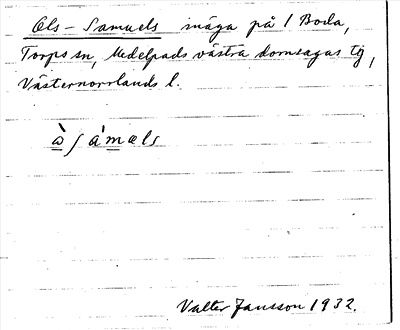 Ols-Samuels mäga på 1 Boda,
Torps sn, Medelpads västra domsagas tg,
Västernorrlands l.
à ʃ ámels
Valter Jansson 1932.